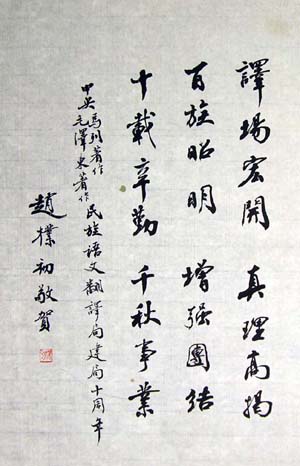 譯場宏開　真理高揭
百族昭明　增强團结
十載辛勤　千秋事業
中央馬列著作毛澤东著作民族语文翻譯局建局十周年
趙樸初敬賀